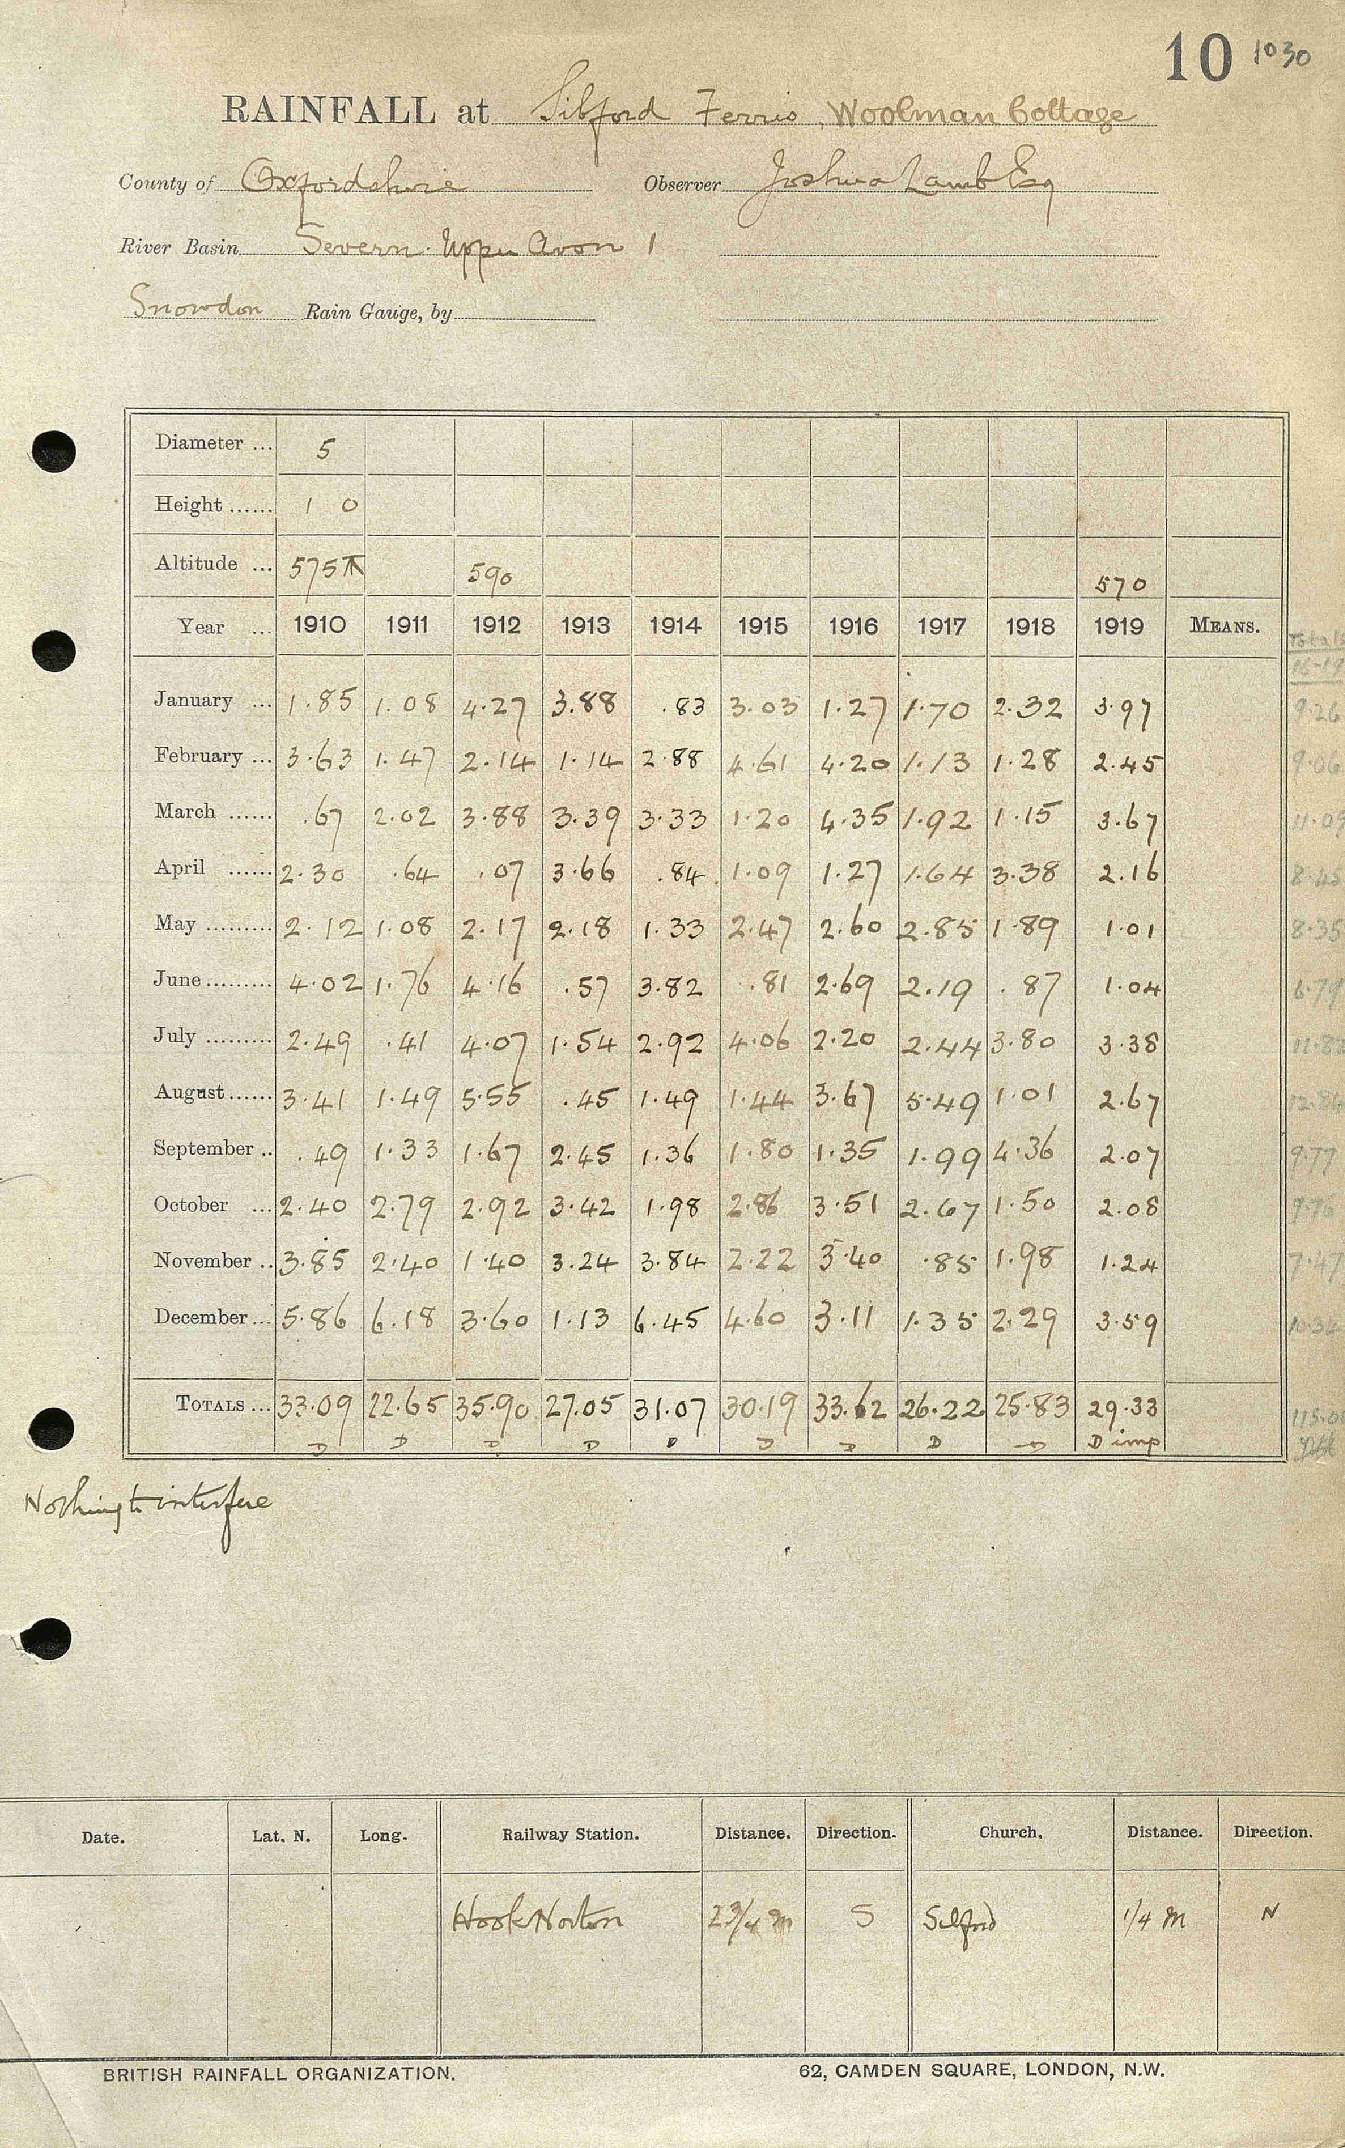 10 1030
RAINFALL at Sibford Ferris, Woolman Cottage
County of Oxfordshire Observer Joshua Lamb Esq
River Basin Severn. Upper Avon 1
Snowdon Rain Gauge, by
Diameter ... 5
Height ...... 1 0
Altitude ... 575 590 570
Year ... 1910 1911 1912 1913 1914 1915 1916 1917 1918 1919 MEANS. Totals
16-19
January ... 1.85 1.08 4.27 3.88 .83 3.03 1.27 1.70 2.32 3.97 9.26
February ... 3.63 1.47 2.14 1.14 2.88 4.61 4.20 1.13 1.28 2.45 9.06
March ...... .67 2.02 3.88 3.39 3.33 1.20 4.35 1.92 1.15 3.67 11.09
April ...... 2.30 .64 .07 3.66 .84 1.09 1.27 1.64 3.38 2.16 8.45
May ......... 2.12 1.08 2.17 2.18 1.33 2.47 2.60 2.85 1.89 1.01 8.35
June ......... 4.02 1.76 4.16 .57 3.82 .81 2.69 2.19 .87 1.04 6.79
July ......... 2.49 .41 4.07 1.54 2.92 4.06 2.20 2.44 3.80 3.38 11.82
August ...... 3.41 1.49 5.55 .45 1.49 1.44 3.67 5.49 1.01 2.67 12.84
September .. .49 1.33 1.67 2.45 1.36 1.80 1.35 1.99 4.36 2.07 9.77
October ... 2.40 2.79 2.92 3.42 1.98 2.86 3.51 2.67 1.50 2.08 9.76
November .. 3.85 2.40 1.40 3.24 3.84 2.22 3.40 .85 1.98 1.24 7.47
December ... 5.86 6.18 3.60 1.13 6.45 4.60 3.11 1.35 2.29 3.59 10.34
TOTALS ... 33.09 22.65 35.90 27.05 31.07 30.19 33.62 26.22 25.83 29.33 115.00
D D D D D D D D D D imp
Nothing to interfere
Date. Lat. N. Long. Railway Station. Distance. Direction. Church. Distance. Direction.
Hook Norton 2 3/4 m S Sibford 1/4 m N
BRITISH RAINFALL ORGANIZATION. 62, CAMDEN SQUARE, LONDON, N.W.